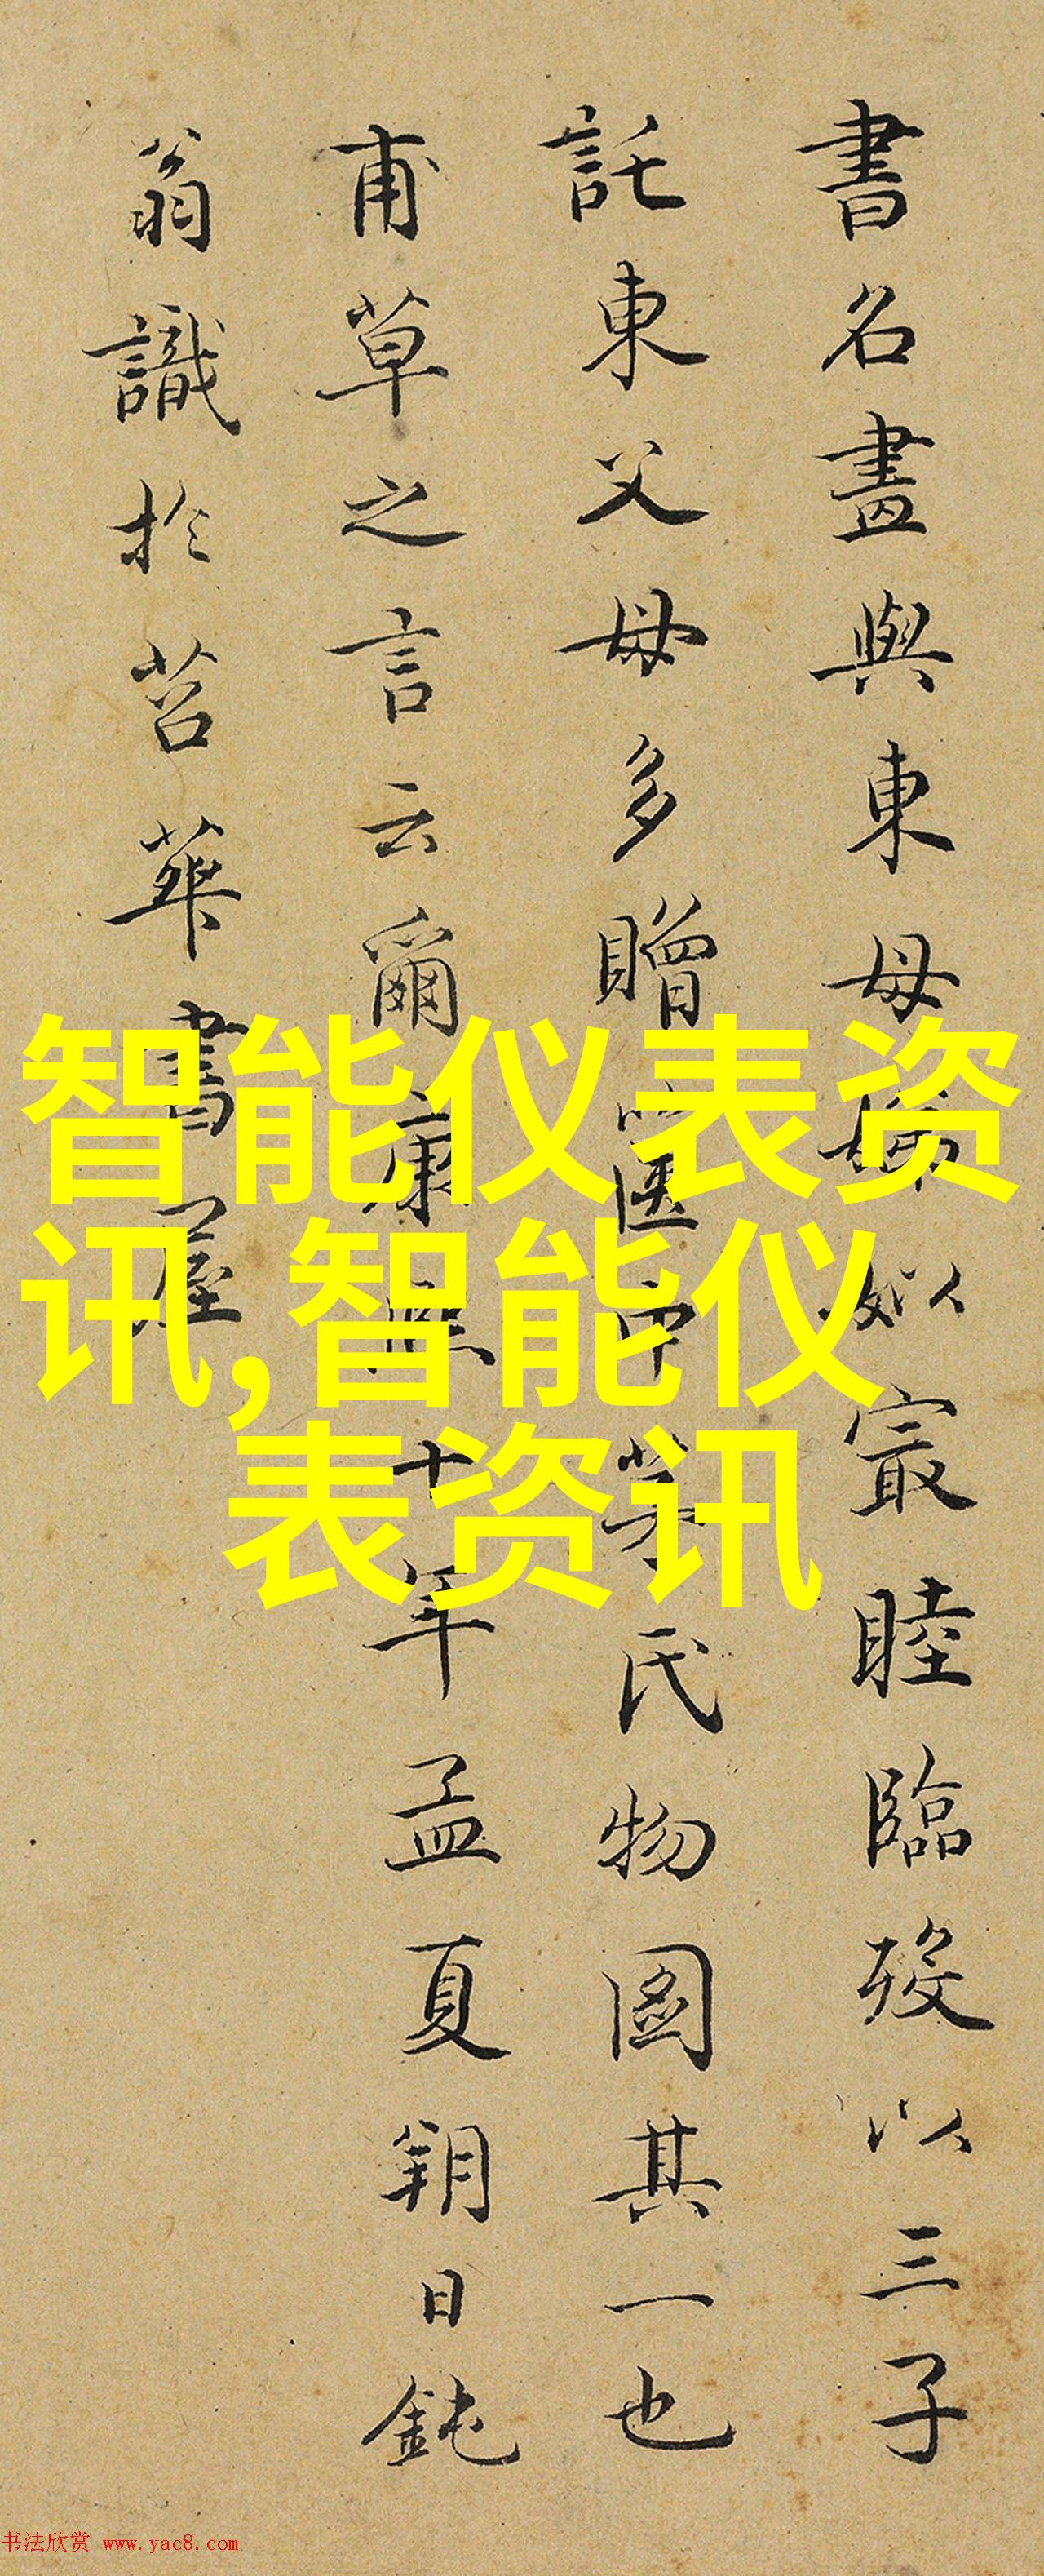 書名畫與東母娣姒最睦臨歿以三子
託東父母多贈中氏物圖其一也
甫草之言云爾康熙十年孟夏朔日鈍
翁識於苕華書屋
智能仪表资
讯,智能仪
表资讯
书法欣赏 www.yac8.com